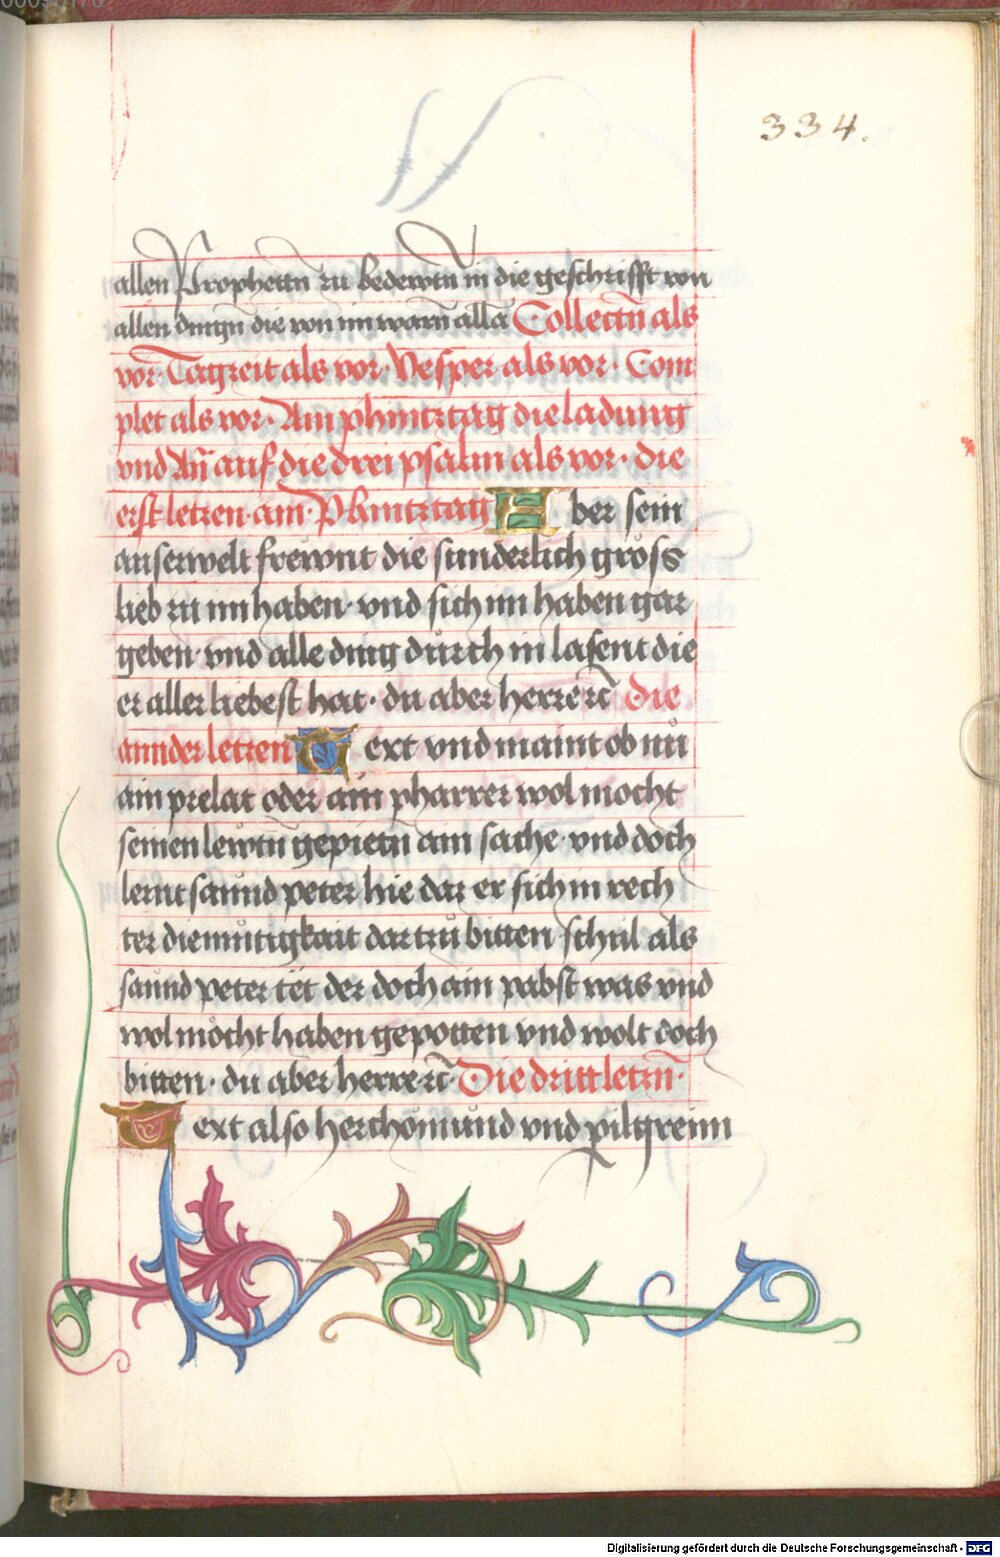 334.
allen Prophettn zu bedewtn in die geschrifft von
allen dingn die von im warn alla Collectn als
vor· Tagzeit als vor· Vesper als vor· Com
plet als vor· Am phintztag die ladung
vnd An̄ auf die drei psalm als vor· die
erst letzen am· Phintztag A ber sein
auserwelt frewnt die sunderlich gross
lieb zu im haben· vnd sich im haben gar
geben· vnd alle ding dürch in lasent die
er aller liebest hat· du aber herre rc̄ die
annder letzen T ext vnd maint ob nu
ain prelat oder ain pharrer wol mocht
seinen lewtn gepietn ain sache· vnd doch
lernt sannd peter hie daz er sich in rech
ter diemütigkait dartzü bitten schul als
sannd peter tet der doch ain pabst was vnd
wol möcht haben gepotten vnd wolt doch
bitten· du aber herre rc̄· Die dritt letzn̄·
T ext also herchömünd vnd pilgreim
Digitalisierung gefördert durch die Deutsche Forschungsgemeinschaft - DFG